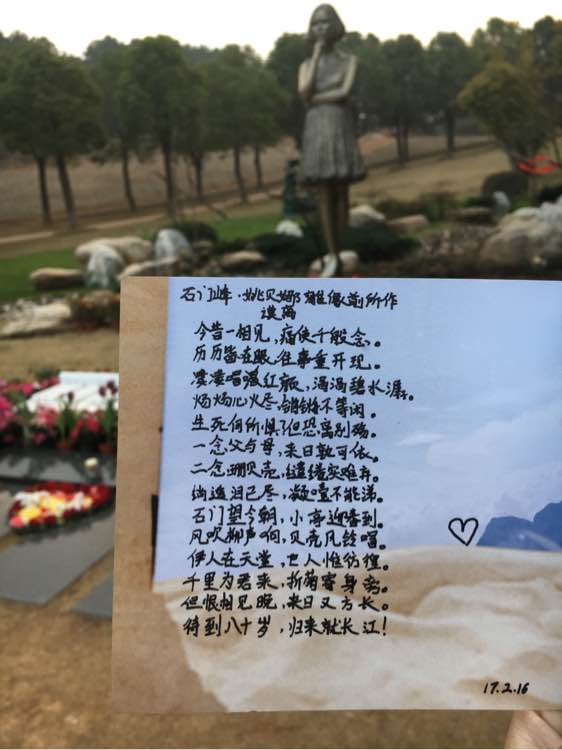 石门峰·姚贝娜雕像前所作
漠离
今昔一相见，痛使千般念。
历历皆在眼，往事重开现。
凄凄唱暖红颜，涓涓碧水潺。
灼灼心火尽，锵锵不等闲。
生死何所惧？但恐离别殇。
一念父与母，来日孰可依。
二念珊贝壳，缱绻实难弃。
绵遥泪已尽，凝噎不能涕。
石门望今朝，小亭迎香到。
风吹柳声响，贝壳风铃唱。
伊人在天堂，世人惟彷徨。
千里为君来，折菊寄身旁。
但恨相见晚，来日又方长。
待到八十岁，归来就长江！
17.2.16